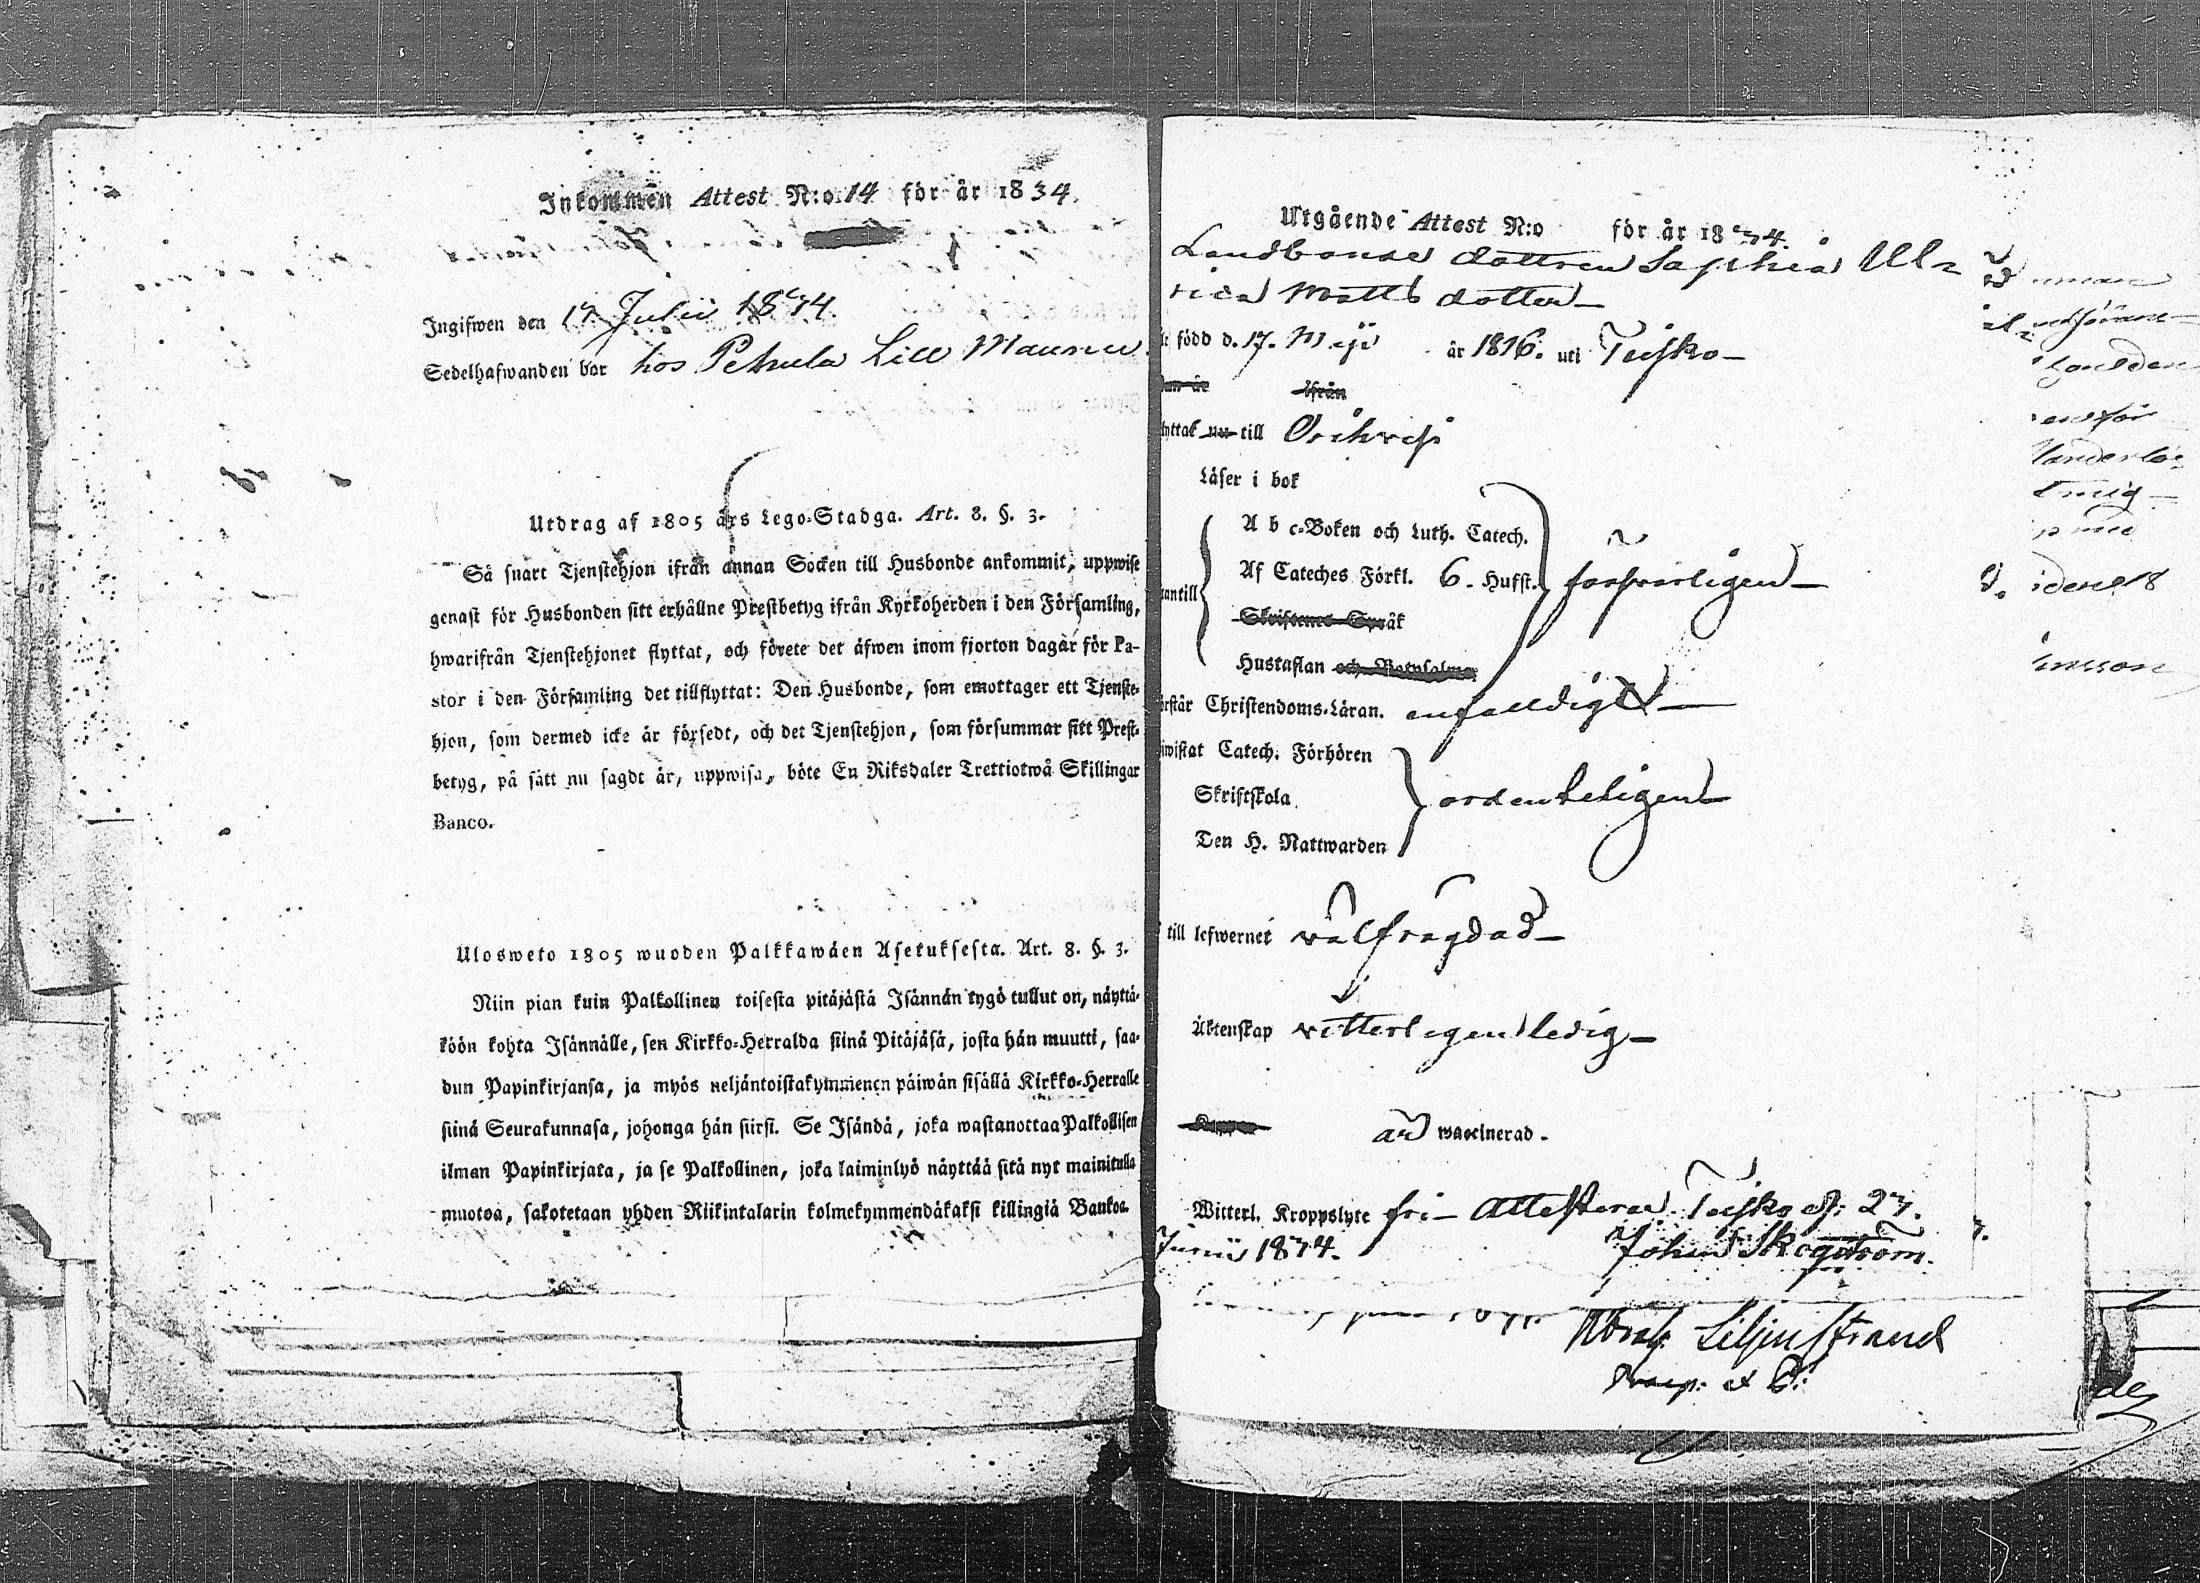 Inkommen Attest N:o 14 för år 1834.
Ingifwen den 17 Julii 1834.
Sedelhafwanden bor hos Petrula Lill Maunu
Utdrag af 1805 års Lego-Stadga. Art. 8. §. 3.
Så snart Tjenstehjon ifrån annan Socken till Husbonde ankommit, uppwise
genast för Husbonden sitt erhållne Prestbetyg ifrån Kyrkoherden i den Församling,
hwarifrån Tjenstehjonet flyttat, och förete det äfwen inom fjorton dagar för Pa-
stor i den Församling det tillflyttat: Den Husbonde, som emottager ett Tjenste-
hjon, som dermed icke är försedt, och det Tjenstehjon, som försummar sitt Prest-
betyg, på sätt nu sagdt är, uppwisa, böte En Riksdaler Trettiotwå Skillingar
Banco.
Ulosweto 1805 wuoden Palkkawäen Asetuksesta. Art. 8. §. 3.
Niin pian kuin Palkollinen toisesta pitäjästä Isännän tygö tullut on, näyttä-
köön kohta Isännälle, sen Kirkko-Herralda siinä Pitäjäsä, josta hän muutti, saa-
dun Papinkirjansa, ja myös neljäntoistakymmenen päiwän sisällä Kirkko-Herralle
siinä Seurakunnasa, johonga hän siirsi. Se Isändä, joka wastanottaa Palkollisen
ilman Papinkirjata, ja se Palkollinen, joka laiminlyö näyttää sitä nyt mainitulla
muotoa, sakotetaan yhden Riikintalarin kolmekymmendäkaksi killingiä Bankoa.
Utgående Attest N:o för år 1834.
Landbonde dottren Sophia Ul-
rica Matts dotter
född d. 17. Maji år 1816. uti Teisko
ifrån
lyttat nu till Orihwesi
Läser i bok
A b c-Boken och Luth. Catech.
Af Cateches Förkl. 6. Hufst. försvarligen
antill
Skriftenes Språk
Hustaflan och Botpsalma
rstår Christendoms-Läran. enfalldigt
iwistat Catech. Förhören
Skriftskola ordenteligen
Den H. Nattwarden
till lefwernet wälfrägdad
Äktenskap vitterligen ledig
är waccinerad.
Witterl. Kroppslyte fri Attesterar. Teisko d: 23.
Junii 1834. Johan Skogström.
Abrah. Liljenstrand